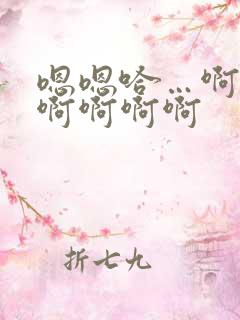 嗯嗯哈…啊
啊啊啊啊
折七九